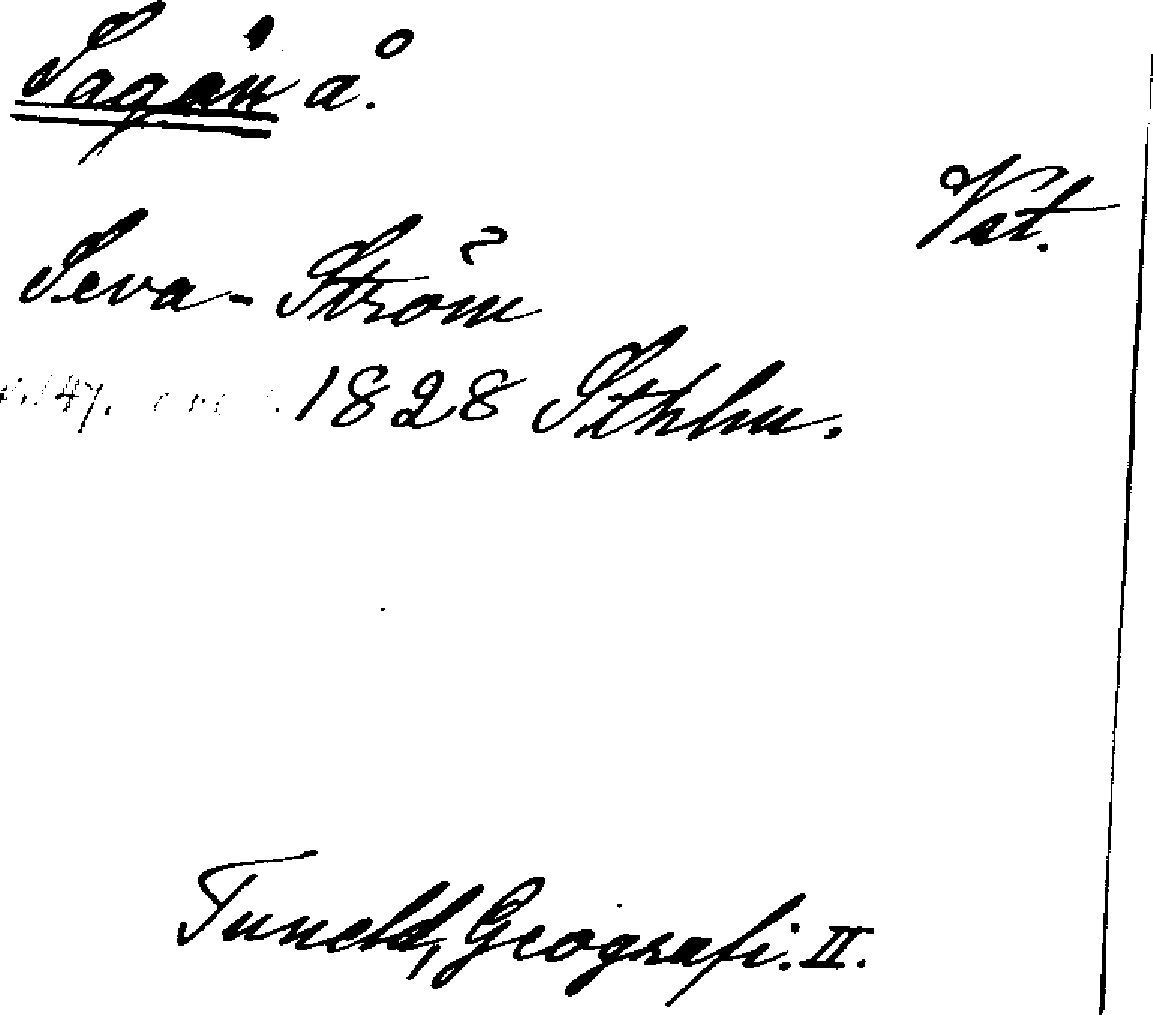 Sagån å.
Vst.
Seva-Ström
1828 Sthlm.
Tuneld, Geografi. II.